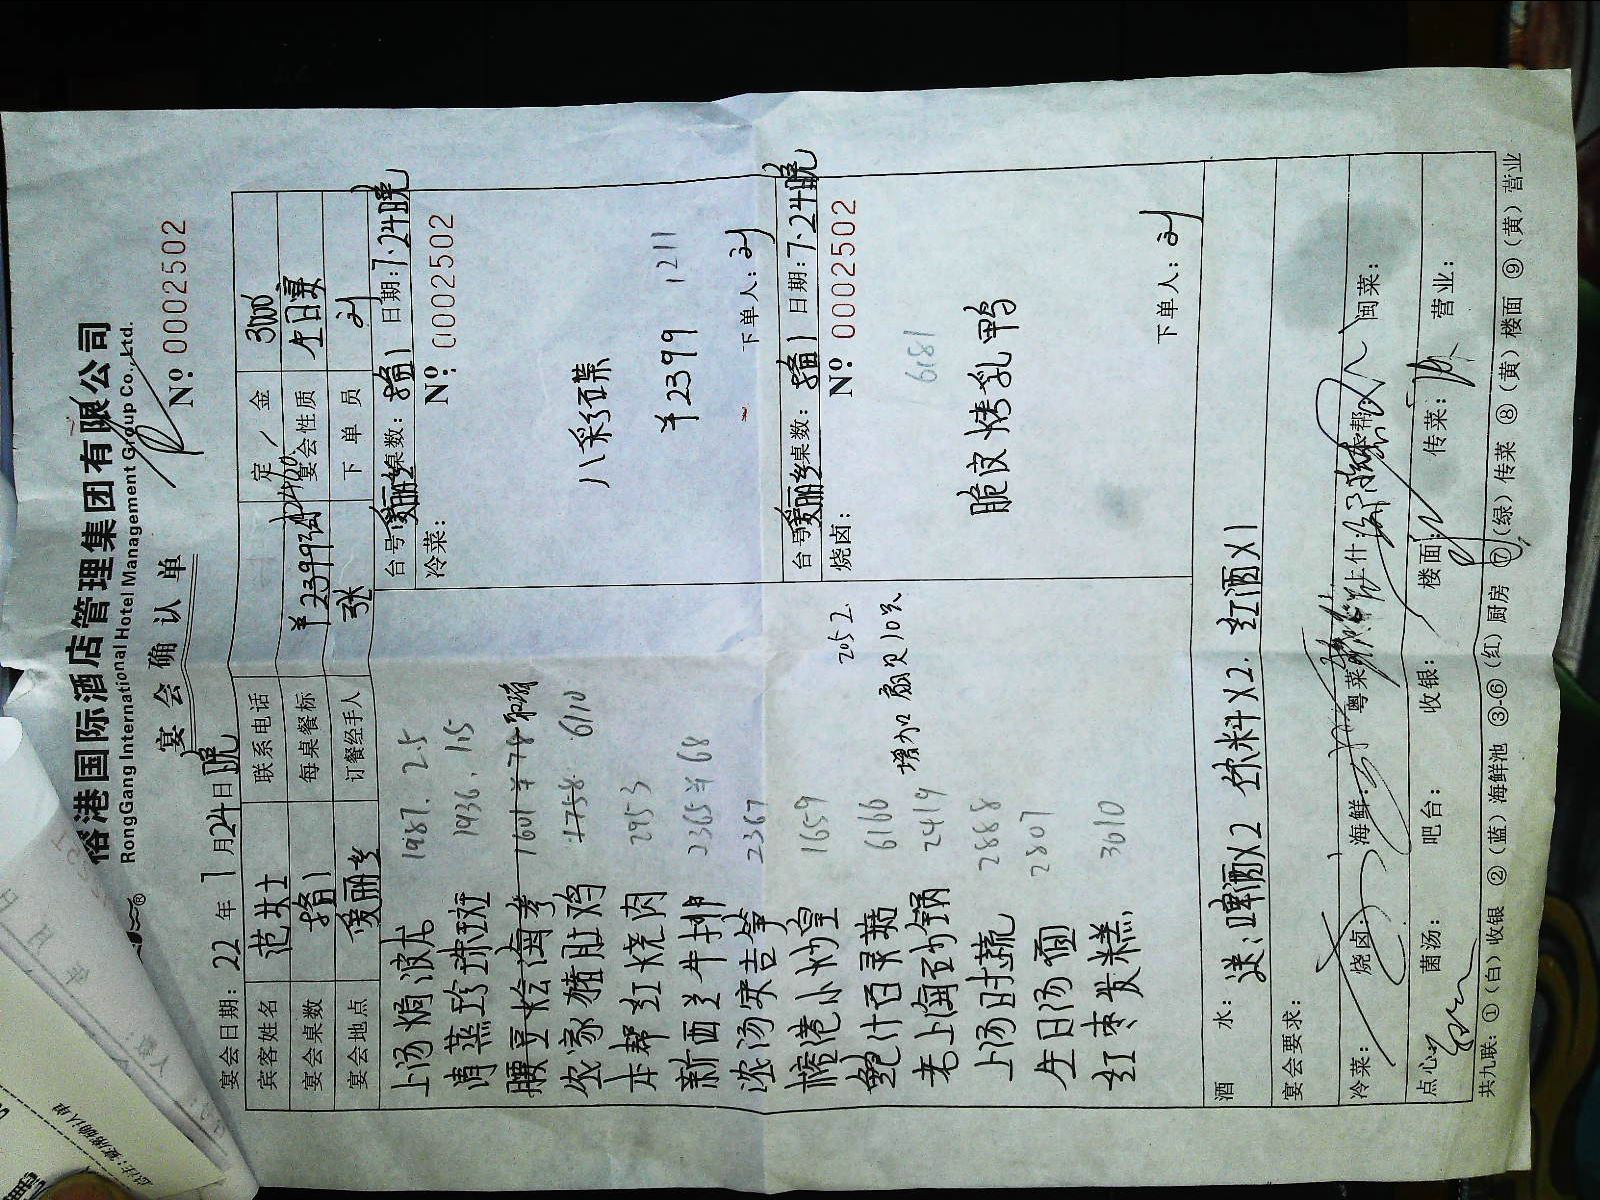 榕港国际酒店管理集团有限公司
RongGang International Hotel Management Group Co., Ltd.
宴会确认单
Nº: 0002502
宴会日期: 22 年 7 月 24 日 晚
宾客姓名 范女士 联系电话 定金 3000
宴会桌数 1 每桌餐标 ¥2399 宴会性质 生日宴
宴会地点 爱丽乡 订餐经手人 张 下单员 刘
上汤焗波龙 1987. 2.5
清蒸珍珠斑 1936. 1.5
腰豆烩海参 1601 ¥78
农家猪肚鸡 1758 6110
本帮红烧肉 2953
新西兰牛排 2365 ¥68
浓汤安吉笋 2367
榕港小炒皇 1659 2052
鲍汁百灵菇 6166
老上海砂锅 2419 增加扇贝10只
上汤时蔬 2888
生日汤面 2807
红枣发糕 3610
台号: 爱丽乡 桌数: 1 日期: 7.24晚
冷菜: Nº: 0002502
八彩碟
¥2399 1211
下单人: 刘
台号: 爱丽乡 桌数: 1 日期: 7.24晚
烧卤: Nº: 0002502
6181
脆皮烤乳鸭
下单人: 刘
酒水: 送: 啤酒X2 饮料X2. 红酒X1
宴会要求:
冷菜: 烧卤: 海鲜: 粤菜: 上什: 本帮: 闽菜:
点心: 菌汤: 吧台: 收银: 楼面: 传菜: 营业:
共九联: ①(白)收银 ②(蓝)海鲜池 ③-⑥(红)厨房 ⑦(绿)传菜 ⑧(黄)楼面 ⑨(黄)营业